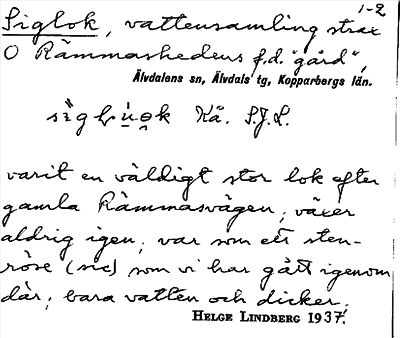 1-2
Siglok, vattensamling strax
O Rämmashedens f.d. "gård",
Älvdalens sn, Älvdals tg, Kopparbergs län.
Kä. S.J.L.
varit en väldigt stor lok efter
gamla Rämmasvägen; växer
aldrig igen; var som ett sten-
röse (sic) som vi har gått igenom
där; bara vatten och dicker.
HELGE LINDBERG 1937.